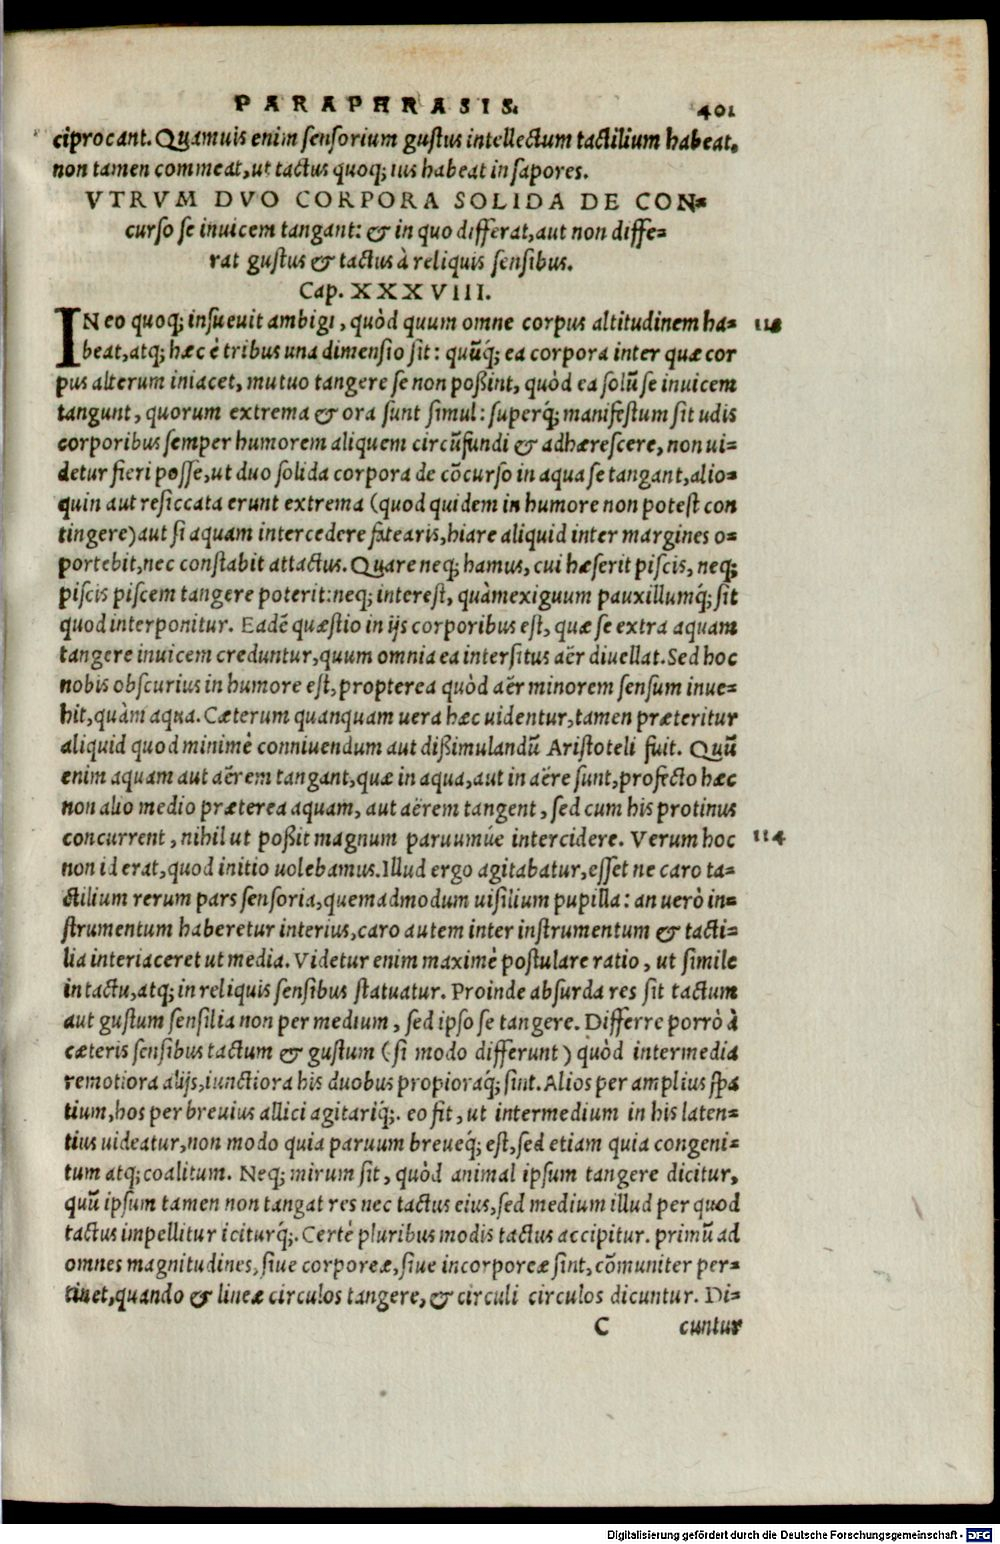 PARAPHRASIS. 401
ciprocant. Quamuis enim sensorium gustus intellectum tactilium habeat,
non tamen commeat, ut tactus quoq; ius habeat in sapores.
VTRVM DVO CORPORA SOLIDA DE CON-
curso se inuicem tangant: & in quo differat, aut non diffe-
rat gustus & tactus à reliquis sensibus.
Cap. XXXVIII.
IN eo quoq; insueuit ambigi, quòd quum omne corpus altitudinem ha-
beat, atq; hæc è tribus una dimensio sit: quũq́; ea corpora inter quæ cor
pus alterum iniacet, mutuo tangere se non poßint, quòd ea solũ se inuicem
tangunt, quorum extrema & ora sunt simul: superq́; manifestum sit udis
corporibus semper humorem aliquem circũfundi & adhærescere, non ui-
detur fieri posse, ut duo solida corpora de cõcurso in aqua se tangant, alio-
quin aut resiccata erunt extrema (quod quidem in humore non potest con
tingere) aut si aquam intercedere fatearis, hiare aliquid inter margines o-
portebit, nec constabit attactus. Quare neq; hamus, cui hæserit piscis, neq;
piscis piscem tangere poterit: neq; interest, quàm exiguum pauxillumq́; sit
quod interponitur. Eadẽ quæstio in ijs corporibus est, quæ se extra aquam
tangere inuicem creduntur, quum omnia ea intersitus aër diuellat. Sed hoc
nobis obscurius in humore est, propterea quòd aër minorem sensum inue-
hit, quàm aqua. Cæterum quanquam uera hæc uidentur, tamen præteritur
aliquid quod minimè conniuendum aut dißimulandũ Aristoteli fuit. Quũ
enim aquam aut aërem tangant, quæ in aqua, aut in aëre sunt, profecto hæc
non alio medio præterea aquam, aut aërem tangent, sed cum his protinus
concurrent, nihil ut poßit magnum paruumúe intercidere. Verum hoc 114
non id erat, quod initio uolebamus. Illud ergo agitabatur, esset ne caro ta-
ctilium rerum pars sensoria, quemadmodum uisilium pupilla: an uerò in-
strumentum haberetur interius, caro autem inter instrumentum & tacti-
lia interiaceret ut media. Videtur enim maximè postulare ratio, ut simile
in tactu, atq; in reliquis sensibus statuatur. Proinde absurda res sit tactum
aut gustum sensilia non per medium, sed ipso se tangere. Differre porrò à
cæteris sensibus tactum & gustum (si modo differunt) quòd intermedia
remotiora alijs, iunctiora his duobus propioraq́; sint. Alios per amplius spa
tium, hos per breuius allici agitariq́;. eo fit, ut intermedium in his laten-
tius uideatur, non modo quia paruum breueq́; est, sed etiam quia congeni-
tum atq; coalitum. Neq; mirum sit, quòd animal ipsum tangere dicitur,
quũ ipsum tamen non tangat res nec tactus eius, sed medium illud per quod
tactus impellitur iciturq́;. Certè pluribus modis tactus accipitur. primũ ad
omnes magnitudines, siue corporeæ, siue incorporeæ sint, cõmuniter per-
tinet, quando & lineæ circulos tangere, & circuli circulos dicuntur. Di-
C cuntur
Digitalisierung gefördert durch die Deutsche Forschungsgemeinschaft - DFG